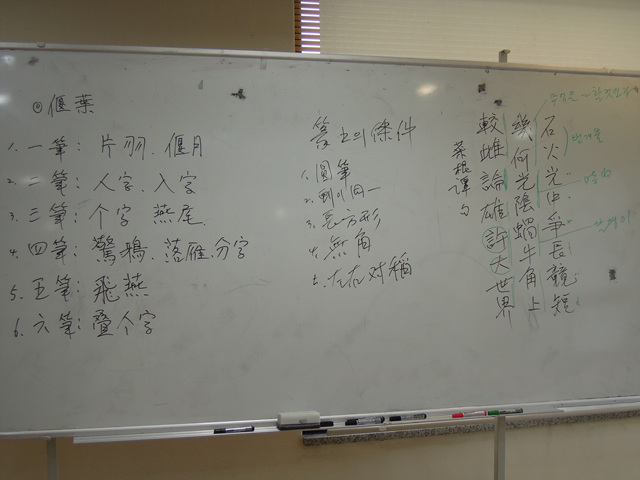 ◎ 偃葉
1. 一筆: 片羽. 偃月
2. 二筆: 人字. 入字
3. 三筆: 个字 燕尾.
4. 四筆: 驚鴉. 落雁. 分字
5. 五筆: 飛燕
6. 六筆: 疊个字
篆書의 條件
1. 圓筆
3. 長方形
4. 無角
5. 左右対稱
石火光中爭長競短
幾何光陰蝸牛角上
較雌論雄許大世界
菜根譚 句